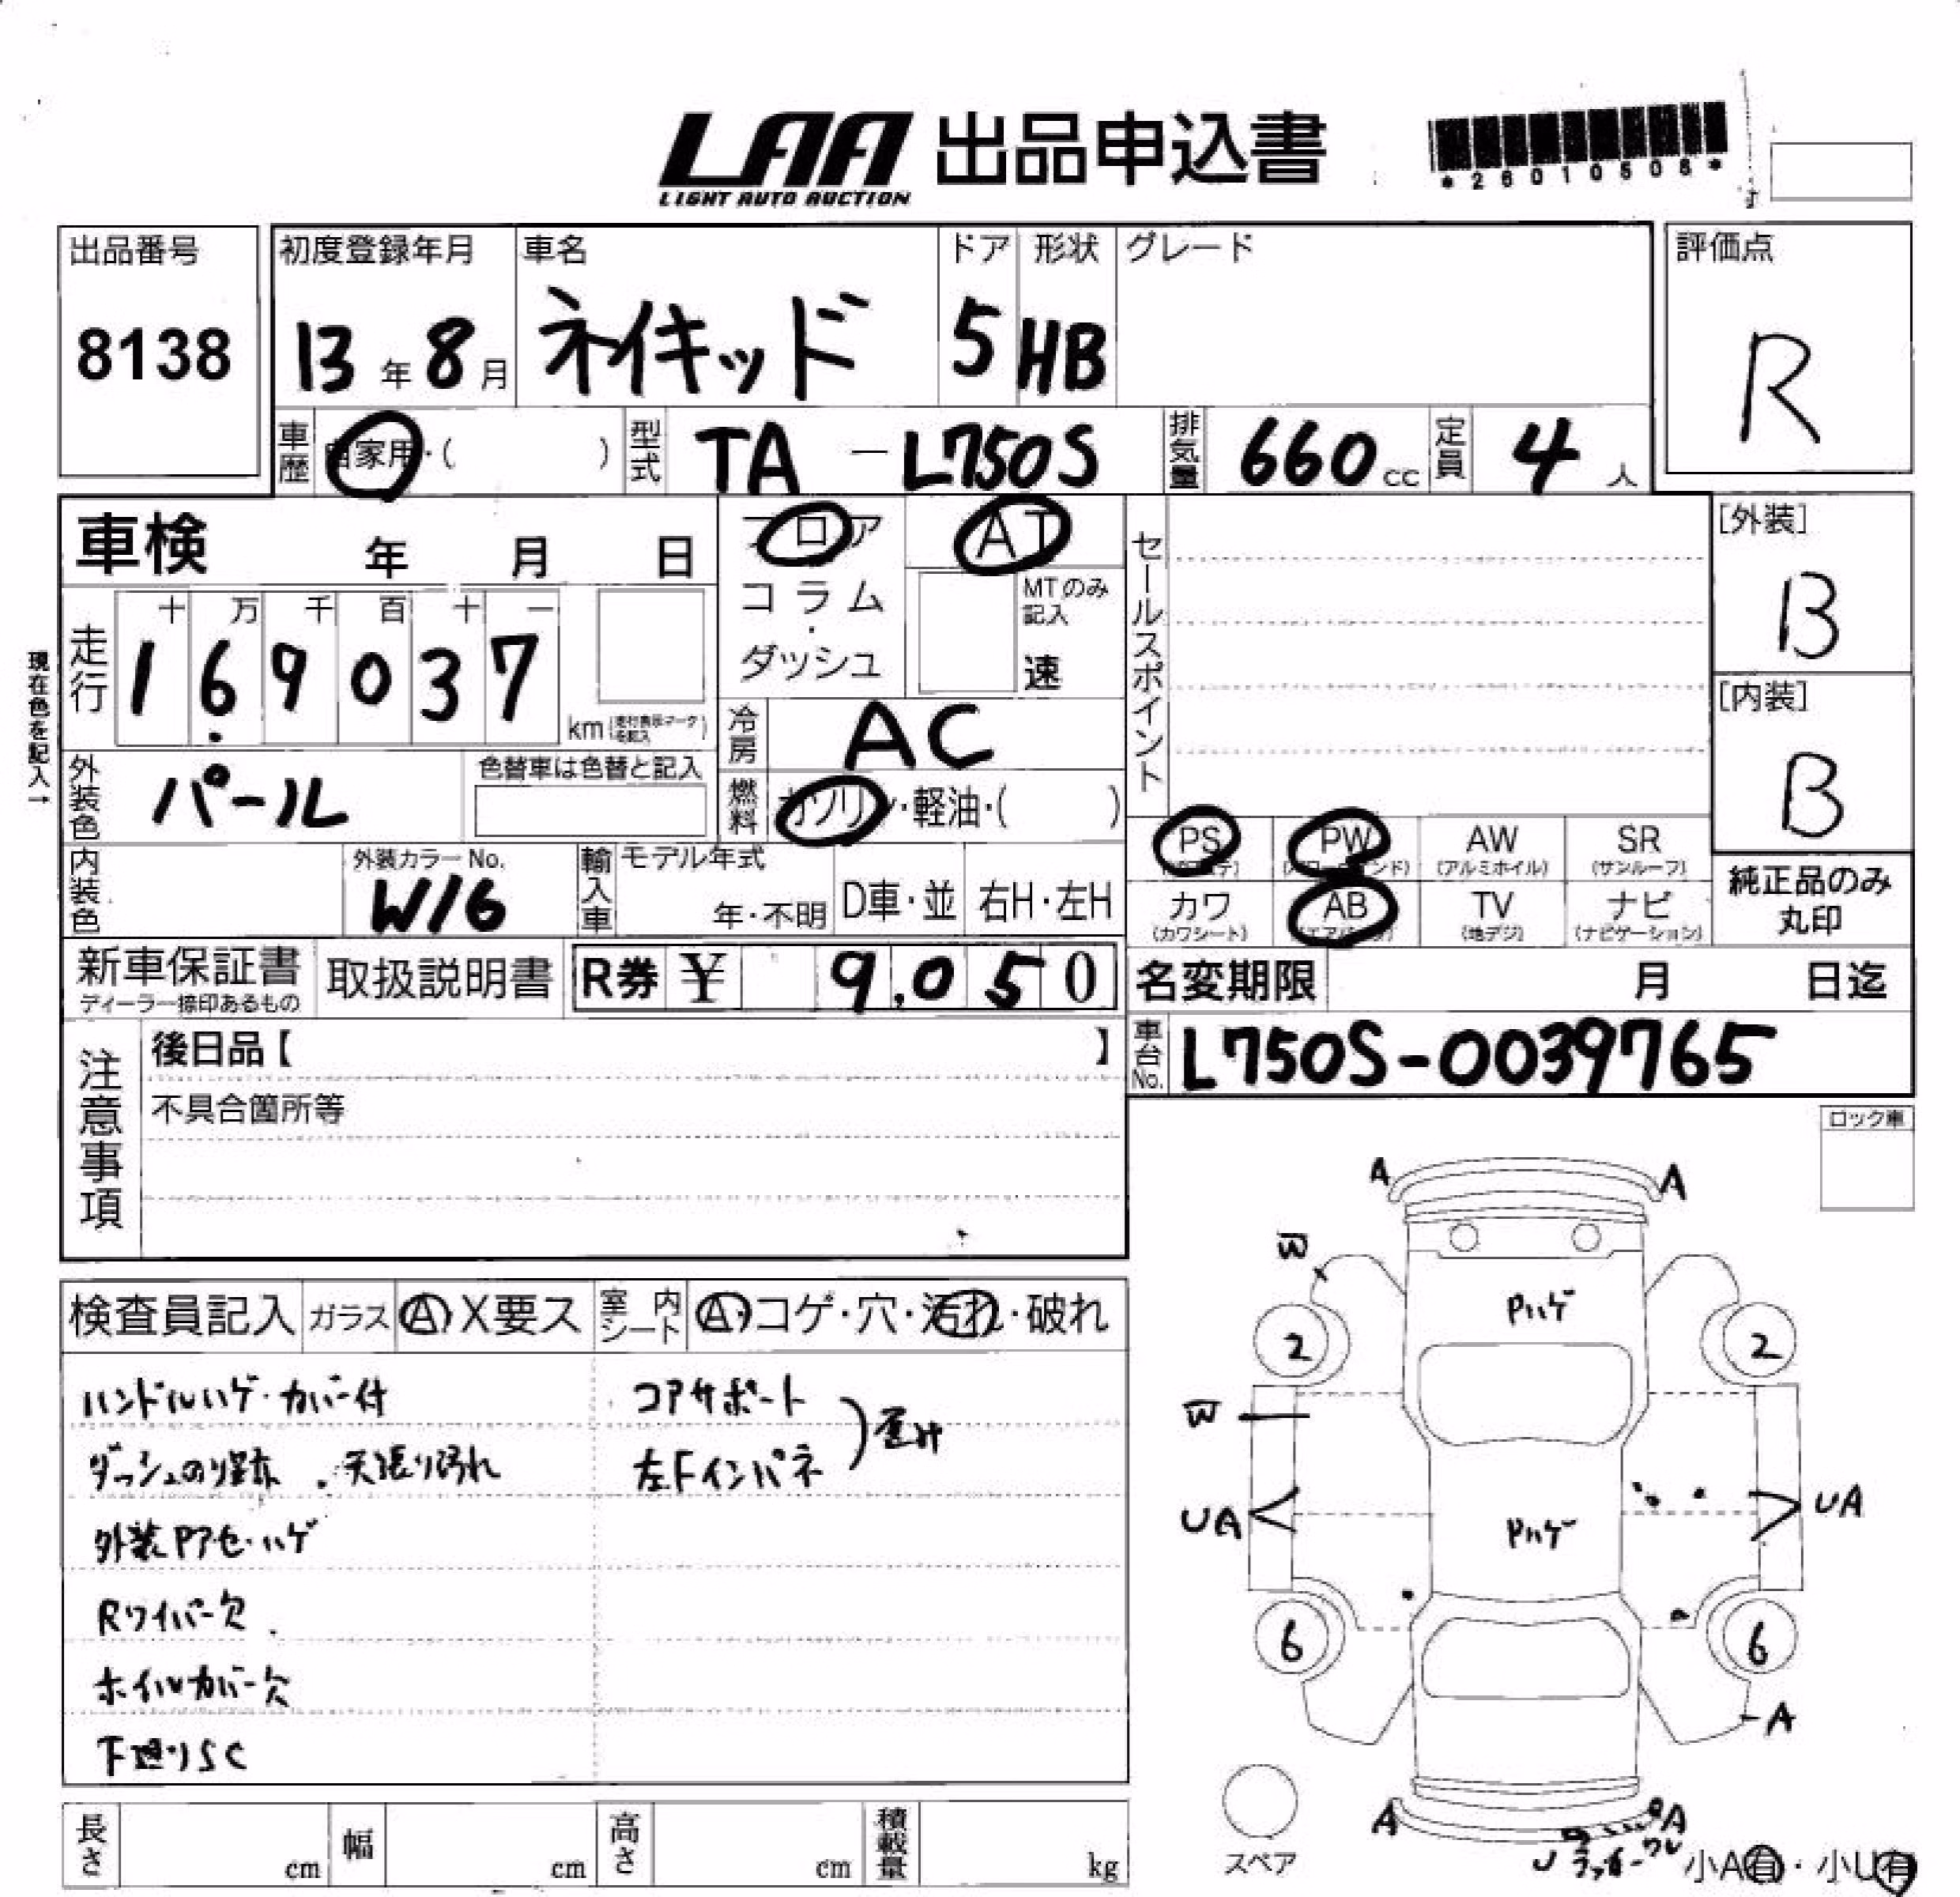 LAA 出品申込書
LIGHT AUTO AUCTION
*26010508*
出品番号
8138
初度登録年月
13年8月
車名
ネイキッド
ドア
5
形状
HB
グレード
評価点
R
車歴
自家用・( )
型式
TA-L750S
排気量
660cc
定員
4人
車検 年 月 日
フロア
コラム
・
ダッシュ
AT
MTのみ記入
速
セールスポイント
[外装]
B
[内装]
B
現在色を記入→
走行
十万千百十一
169037
km
冷房
AC
外装色
パール
色替車は色替と記入
燃料
ガソリン・軽油・( )
PS
PW
(パワーウインド)
AW
(アルミホイル)
SR
(サンルーフ)
カワ
(カワシート)
AB
(エアバック)
TV
(地デジ)
ナビ
(ナビゲーション)
純正品のみ
丸印
内装色
外装カラーNo.
W16
輸入車
モデル年式
年・不明
D車・並
右H・左H
新車保証書
ディーラー捺印あるもの
取扱説明書
R券 ¥ 9,050
名変期限 月 日迄
注意事項
後日品【 】
不具合箇所等
車台No.
L750S-0039765
ロック車
検査員記入
ガラス
A・X要ス
室内シート
A・コゲ・穴・汚れ・破れ
ハンドルハゲ・カバー付
ダッシュのり跡・天張り汚れ
外装Pアセ・ハゲ
Rワイパー欠
ホイルカバー欠
下廻りSC
コアサポート
左Fインパネ
歪み
A
A
W
Pハゲ
2
2
W
UA
UA
Pハゲ
6
6
A
A
A
U
スペア
小A有・小U有
長さ cm
幅 cm
高さ cm
積載量 kg